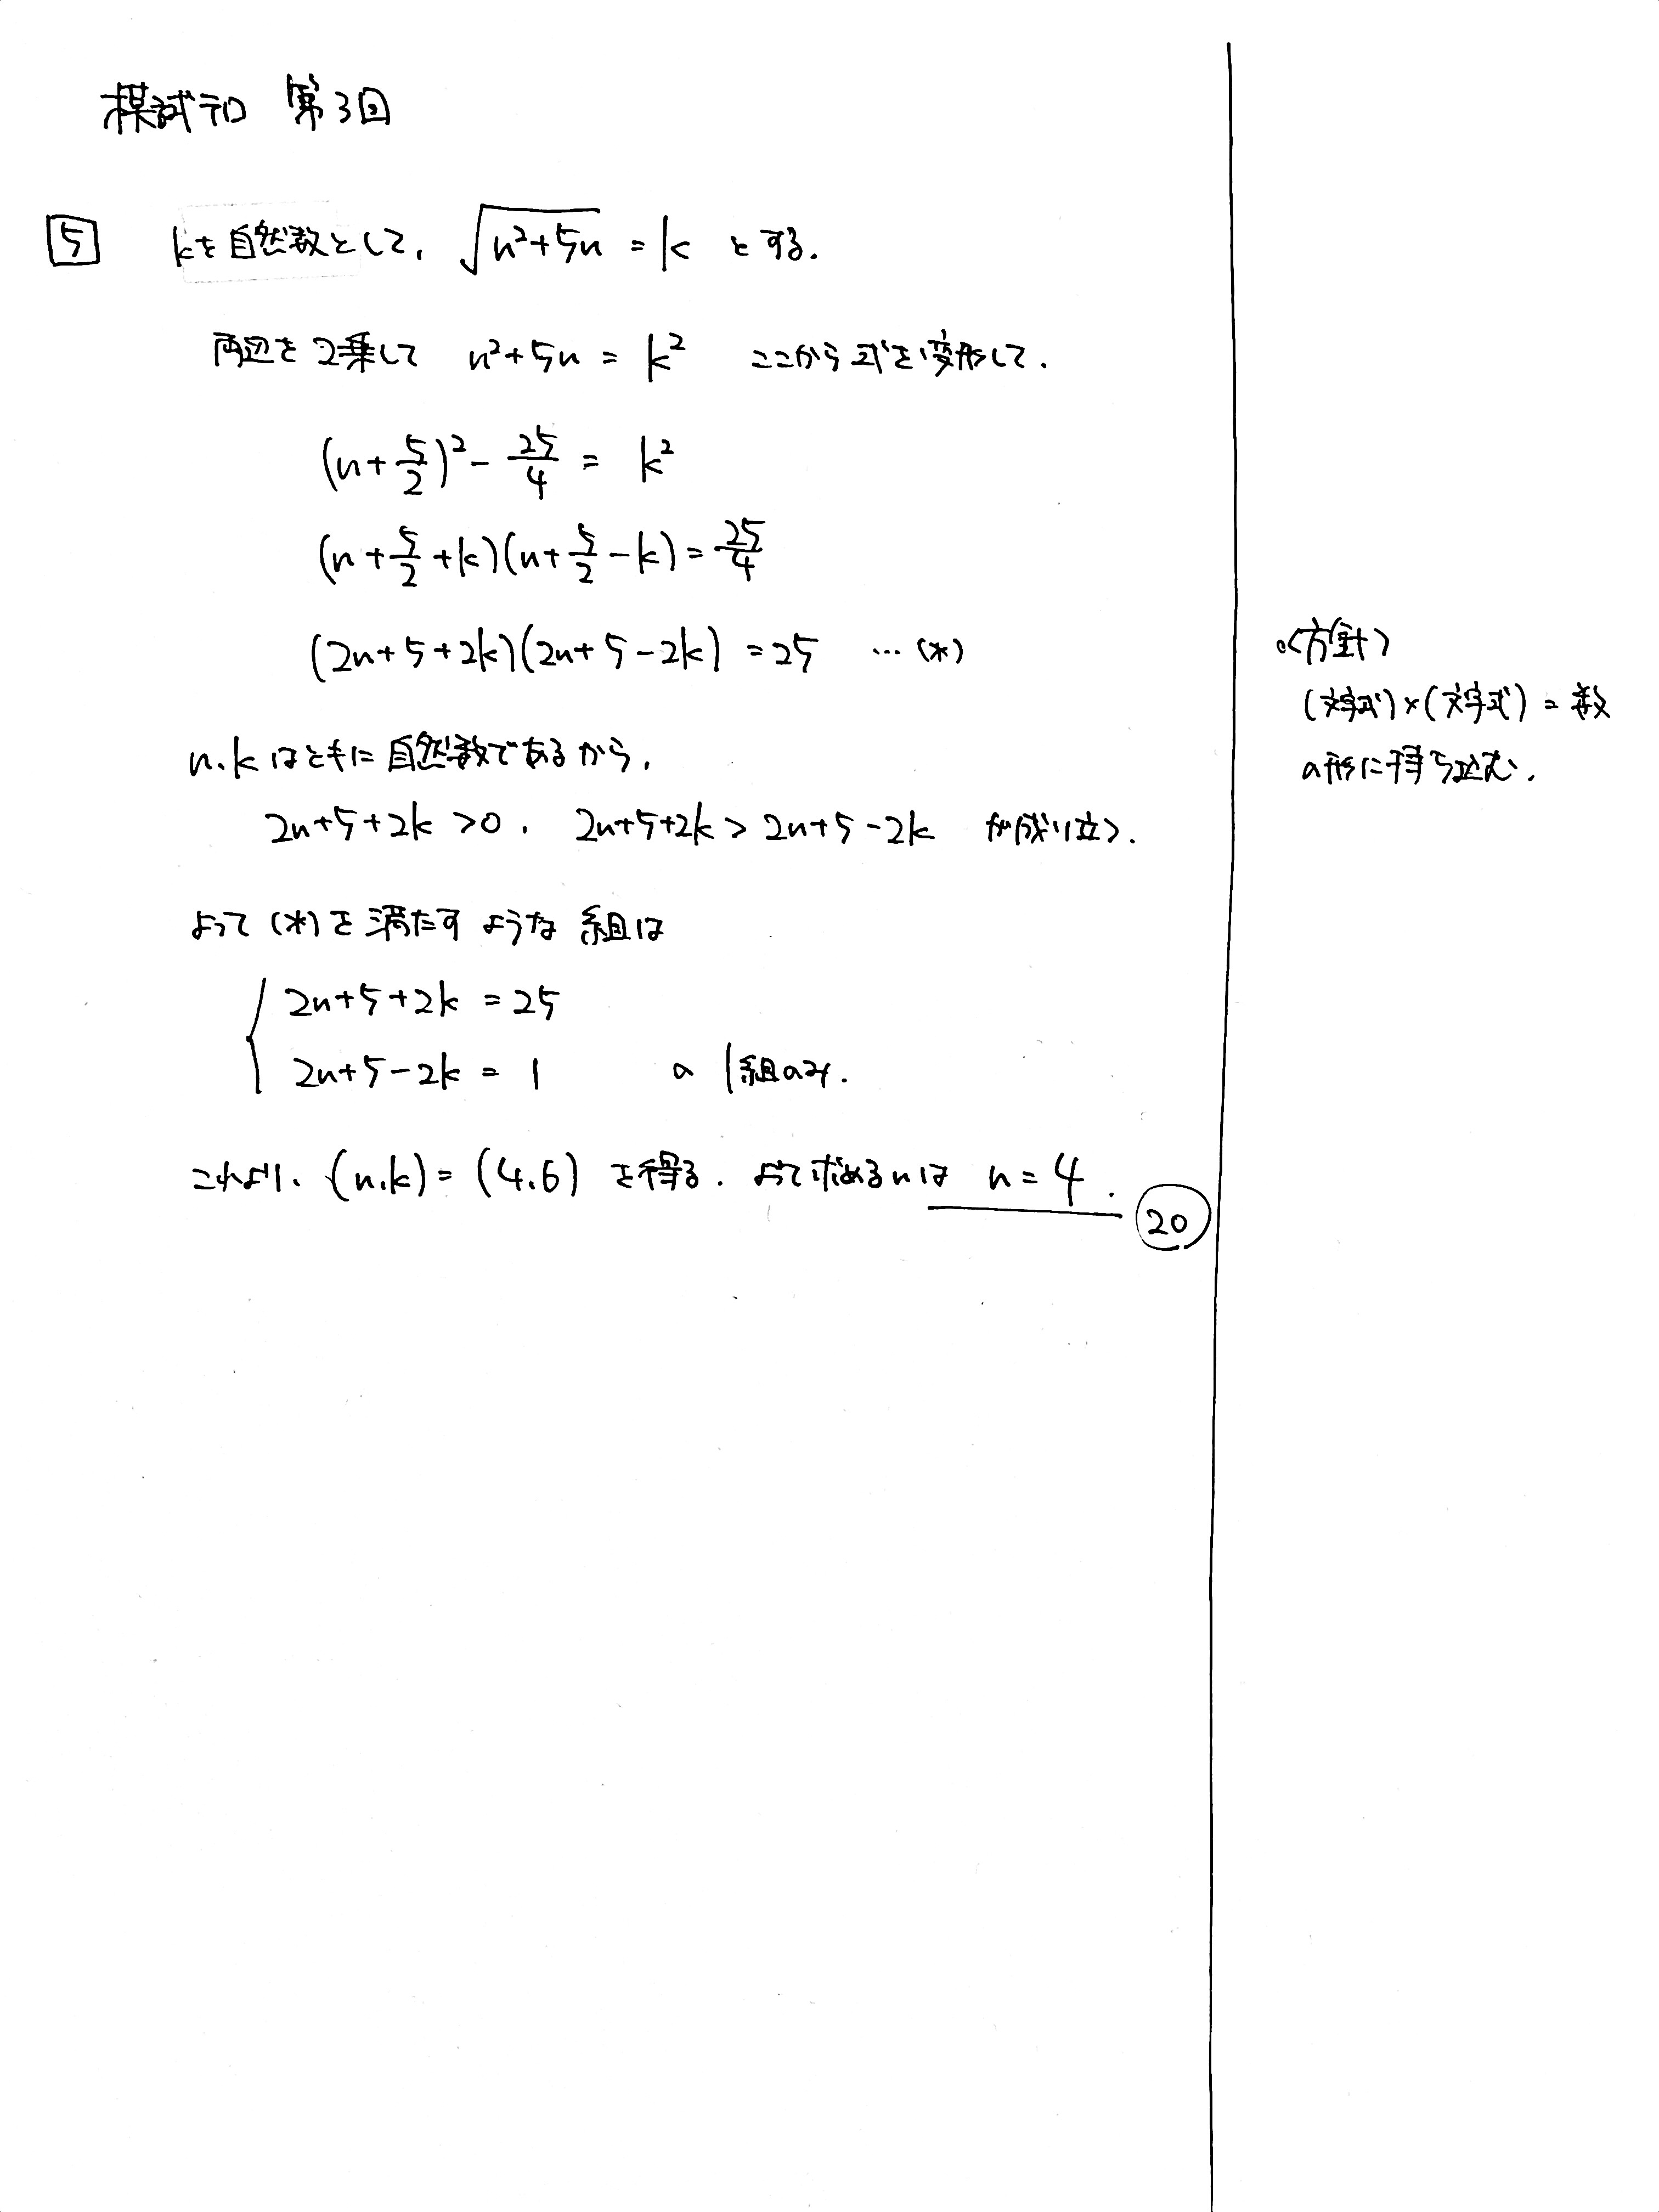 模試テロ 第3回
5 kを自然数として, √(n²+5n) = k とする.
両辺を2乗して n²+5n = k² ここから式を変形して.
(n+5/2)² - 25/4 = k²
(n+5/2+k)(n+5/2-k)=25/4
(2n+5+2k)(2n+5-2k) =25 …(*)
n.kはともに自然数であるから,
2n+5+2k >0, 2n+5+2k > 2n+5-2k が成り立つ.
よって(*)を満たすような組は
{ 2n+5+2k =25
2n+5-2k = 1 の 1組のみ.
これより, (n.k)=(4.6) を得る. よって求めるnは n=4.
20
<方針>
(文字式)×(文字式) = 数
の形に持ち込む.